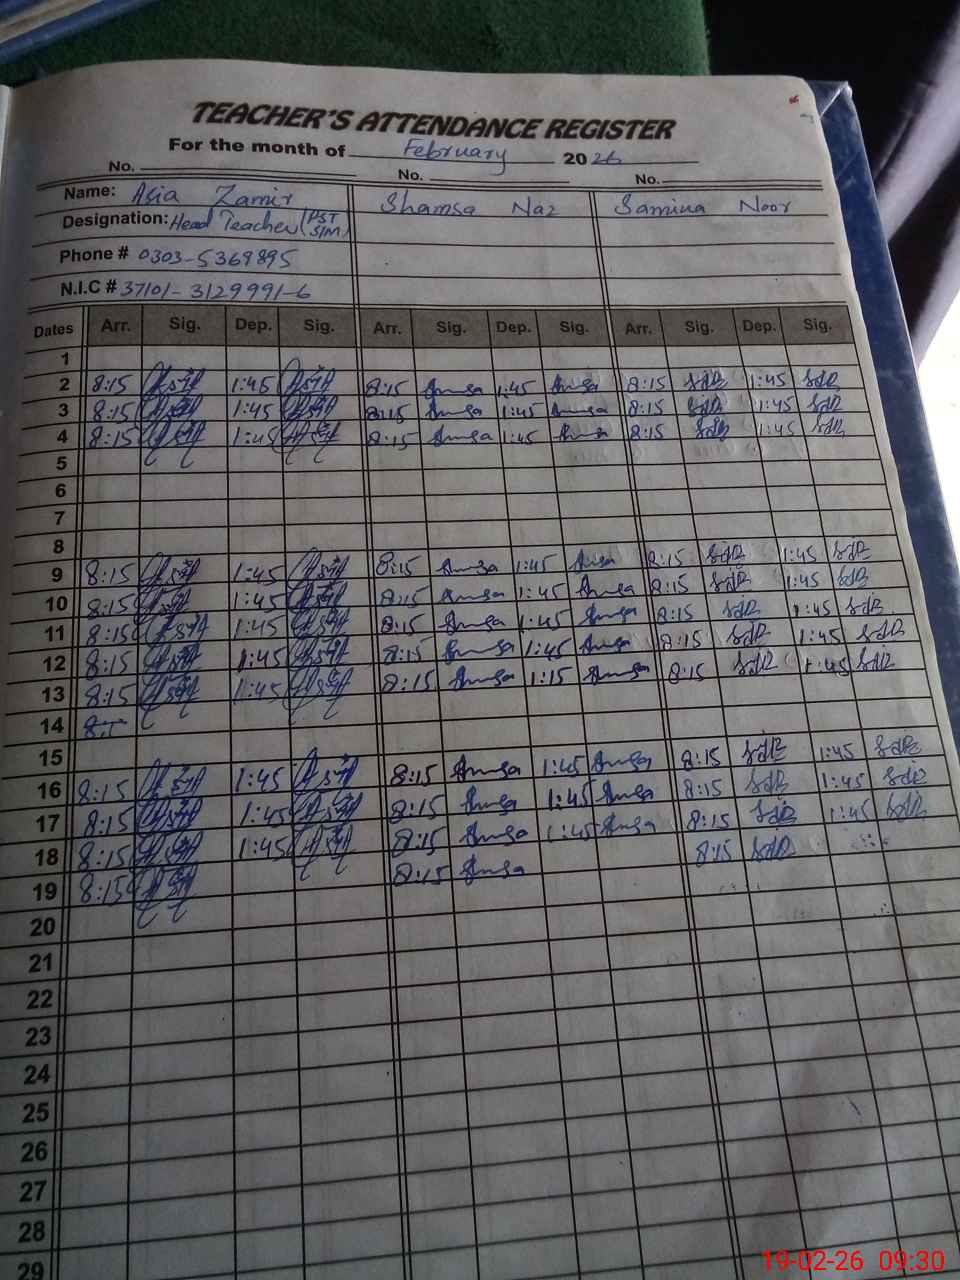 TEACHER'S ATTENDANCE REGISTER
For the month of February 2026
No. No. No.
Name: Asia Zamir Shamsa Naz Samina Noor
Designation: Head Teacher (PST SIM)
Phone # 0303-5369895
N.I.C # 37101-3129991-6
Dates Arr. Sig. Dep. Sig. Arr. Sig. Dep. Sig. Arr. Sig. Dep. Sig.
1
2 8:15 1:45 8:15 Shamsa 1:45 Shamsa 8:15 1:45
3 8:15 1:45 8:15 Shamsa 1:45 Shamsa 8:15 1:45
4 8:15 1:45 8:15 Shamsa 1:45 Shamsa 8:15 1:45
5
6
7
8
9 8:15 1:45 8:15 Shamsa 1:45 Shamsa 8:15 1:45
10 8:15 1:45 8:15 Shamsa 1:45 Shamsa 8:15 1:45
11 8:15 1:45 8:15 Shamsa 1:45 Shamsa 8:15 1:45
12 8:15 1:45 8:15 Shamsa 1:45 Shamsa 8:15 1:45
13 8:15 1:45 8:15 Shamsa 1:15 Shamsa 8:15 1:45
14
15
16 8:15 1:45 8:15 Shamsa 1:45 Shamsa 8:15 1:45
17 8:15 1:45 8:15 Shamsa 1:45 Shamsa 8:15 1:45
18 8:15 1:45 8:15 Shamsa 1:45 Shamsa 8:15 1:45
19 8:15 8:15 Shamsa 8:15
20
21
22
23
24
25
26
27
28
29
19-02-26 09:30